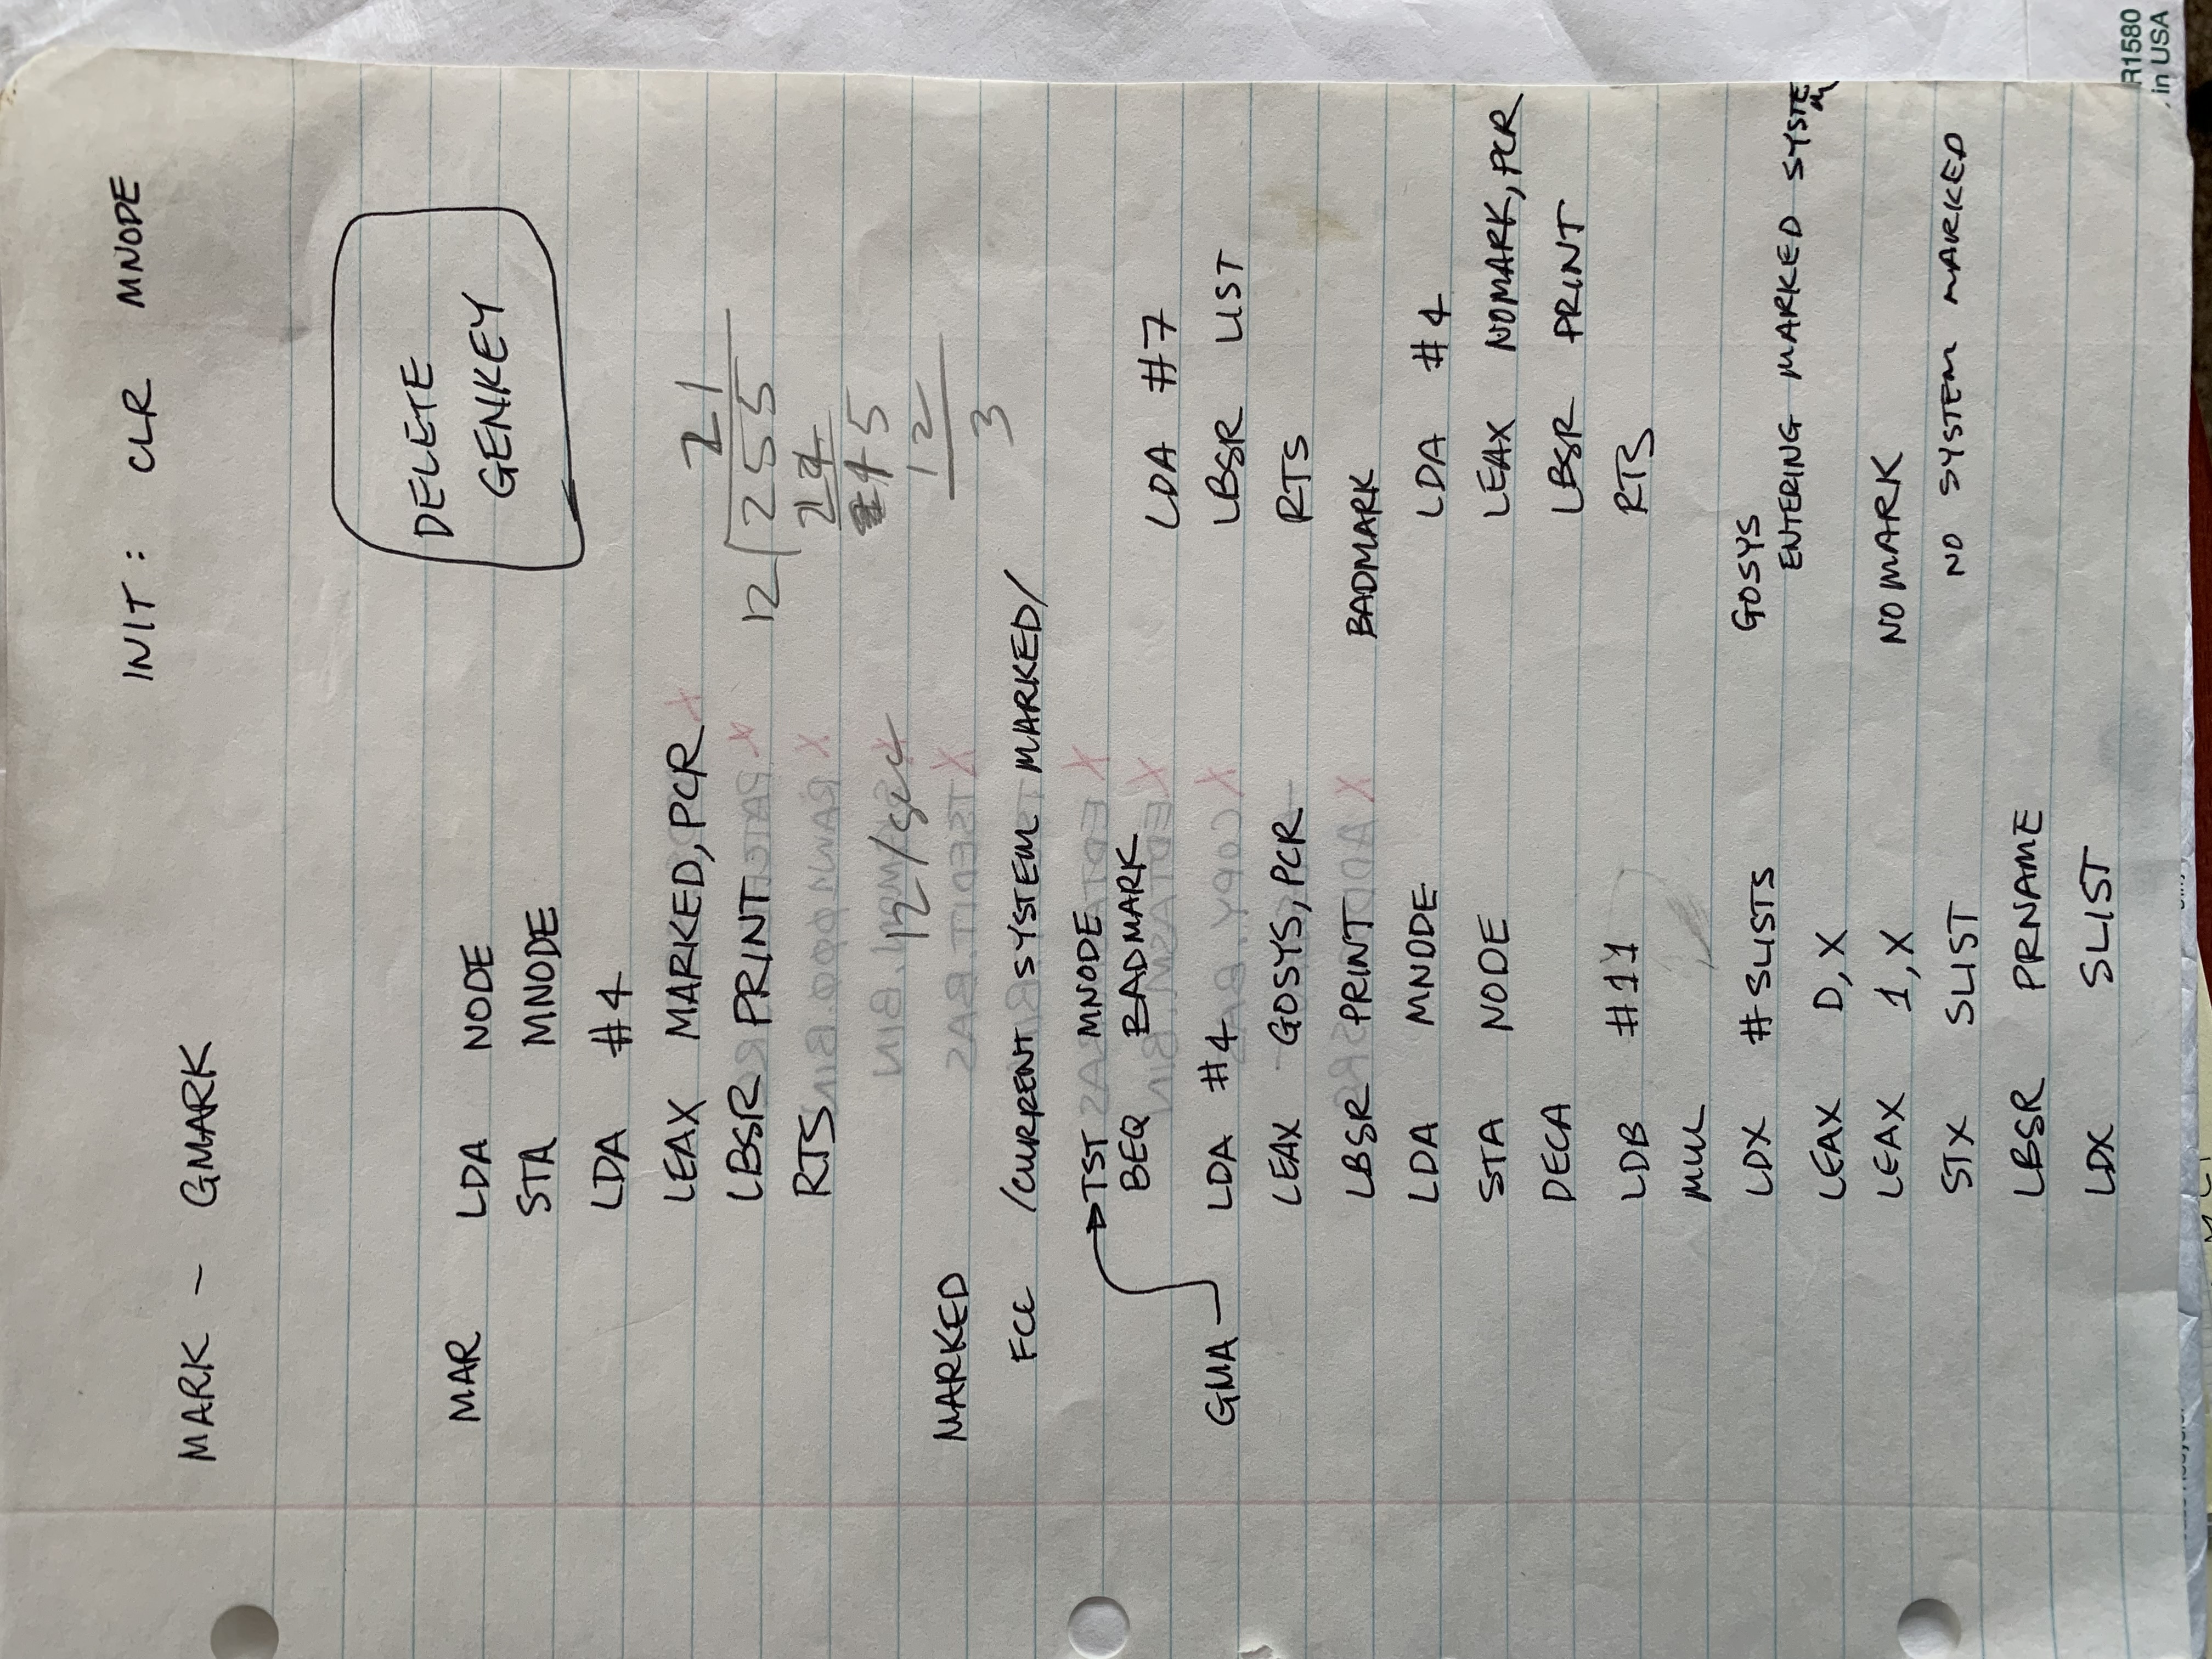 INIT: CLR MNODE
MARK - GMARK
DELETE
GENKEY
MAR LDA NODE
STA MNODE
LDA #4
LEAX MARKED, PCR
LBSR PRINT
RTS
21
12 255
24
15
12
3
12/sec
MARKED
FCC /CURRENT SYSTEM MARKED/
TST MNODE
BEQ BADMARK
GMA LDA #4
LEAX GOSYS, PCR
LBSR PRINT
LDA MNODE
STA NODE
DECA
LDB #11
MUL
LDX #SLISTS
LEAX D,X
LEAX 1,X
STX SLIST
LBSR PRNAME
LDX SLIST
LDA #7
LBSR LIST
RTS
BADMARK
LDA #4
LEAX NOMARK, PCR
LBSR PRINT
RTS
GOSYS
ENTERING MARKED SYSTEM
NOMARK
NO SYSTEM MARKED
PATCH
RAW1000.BIN
TSEDIT.BAS
EDTASM.BIN
COPY.BAS
R1580
in USA